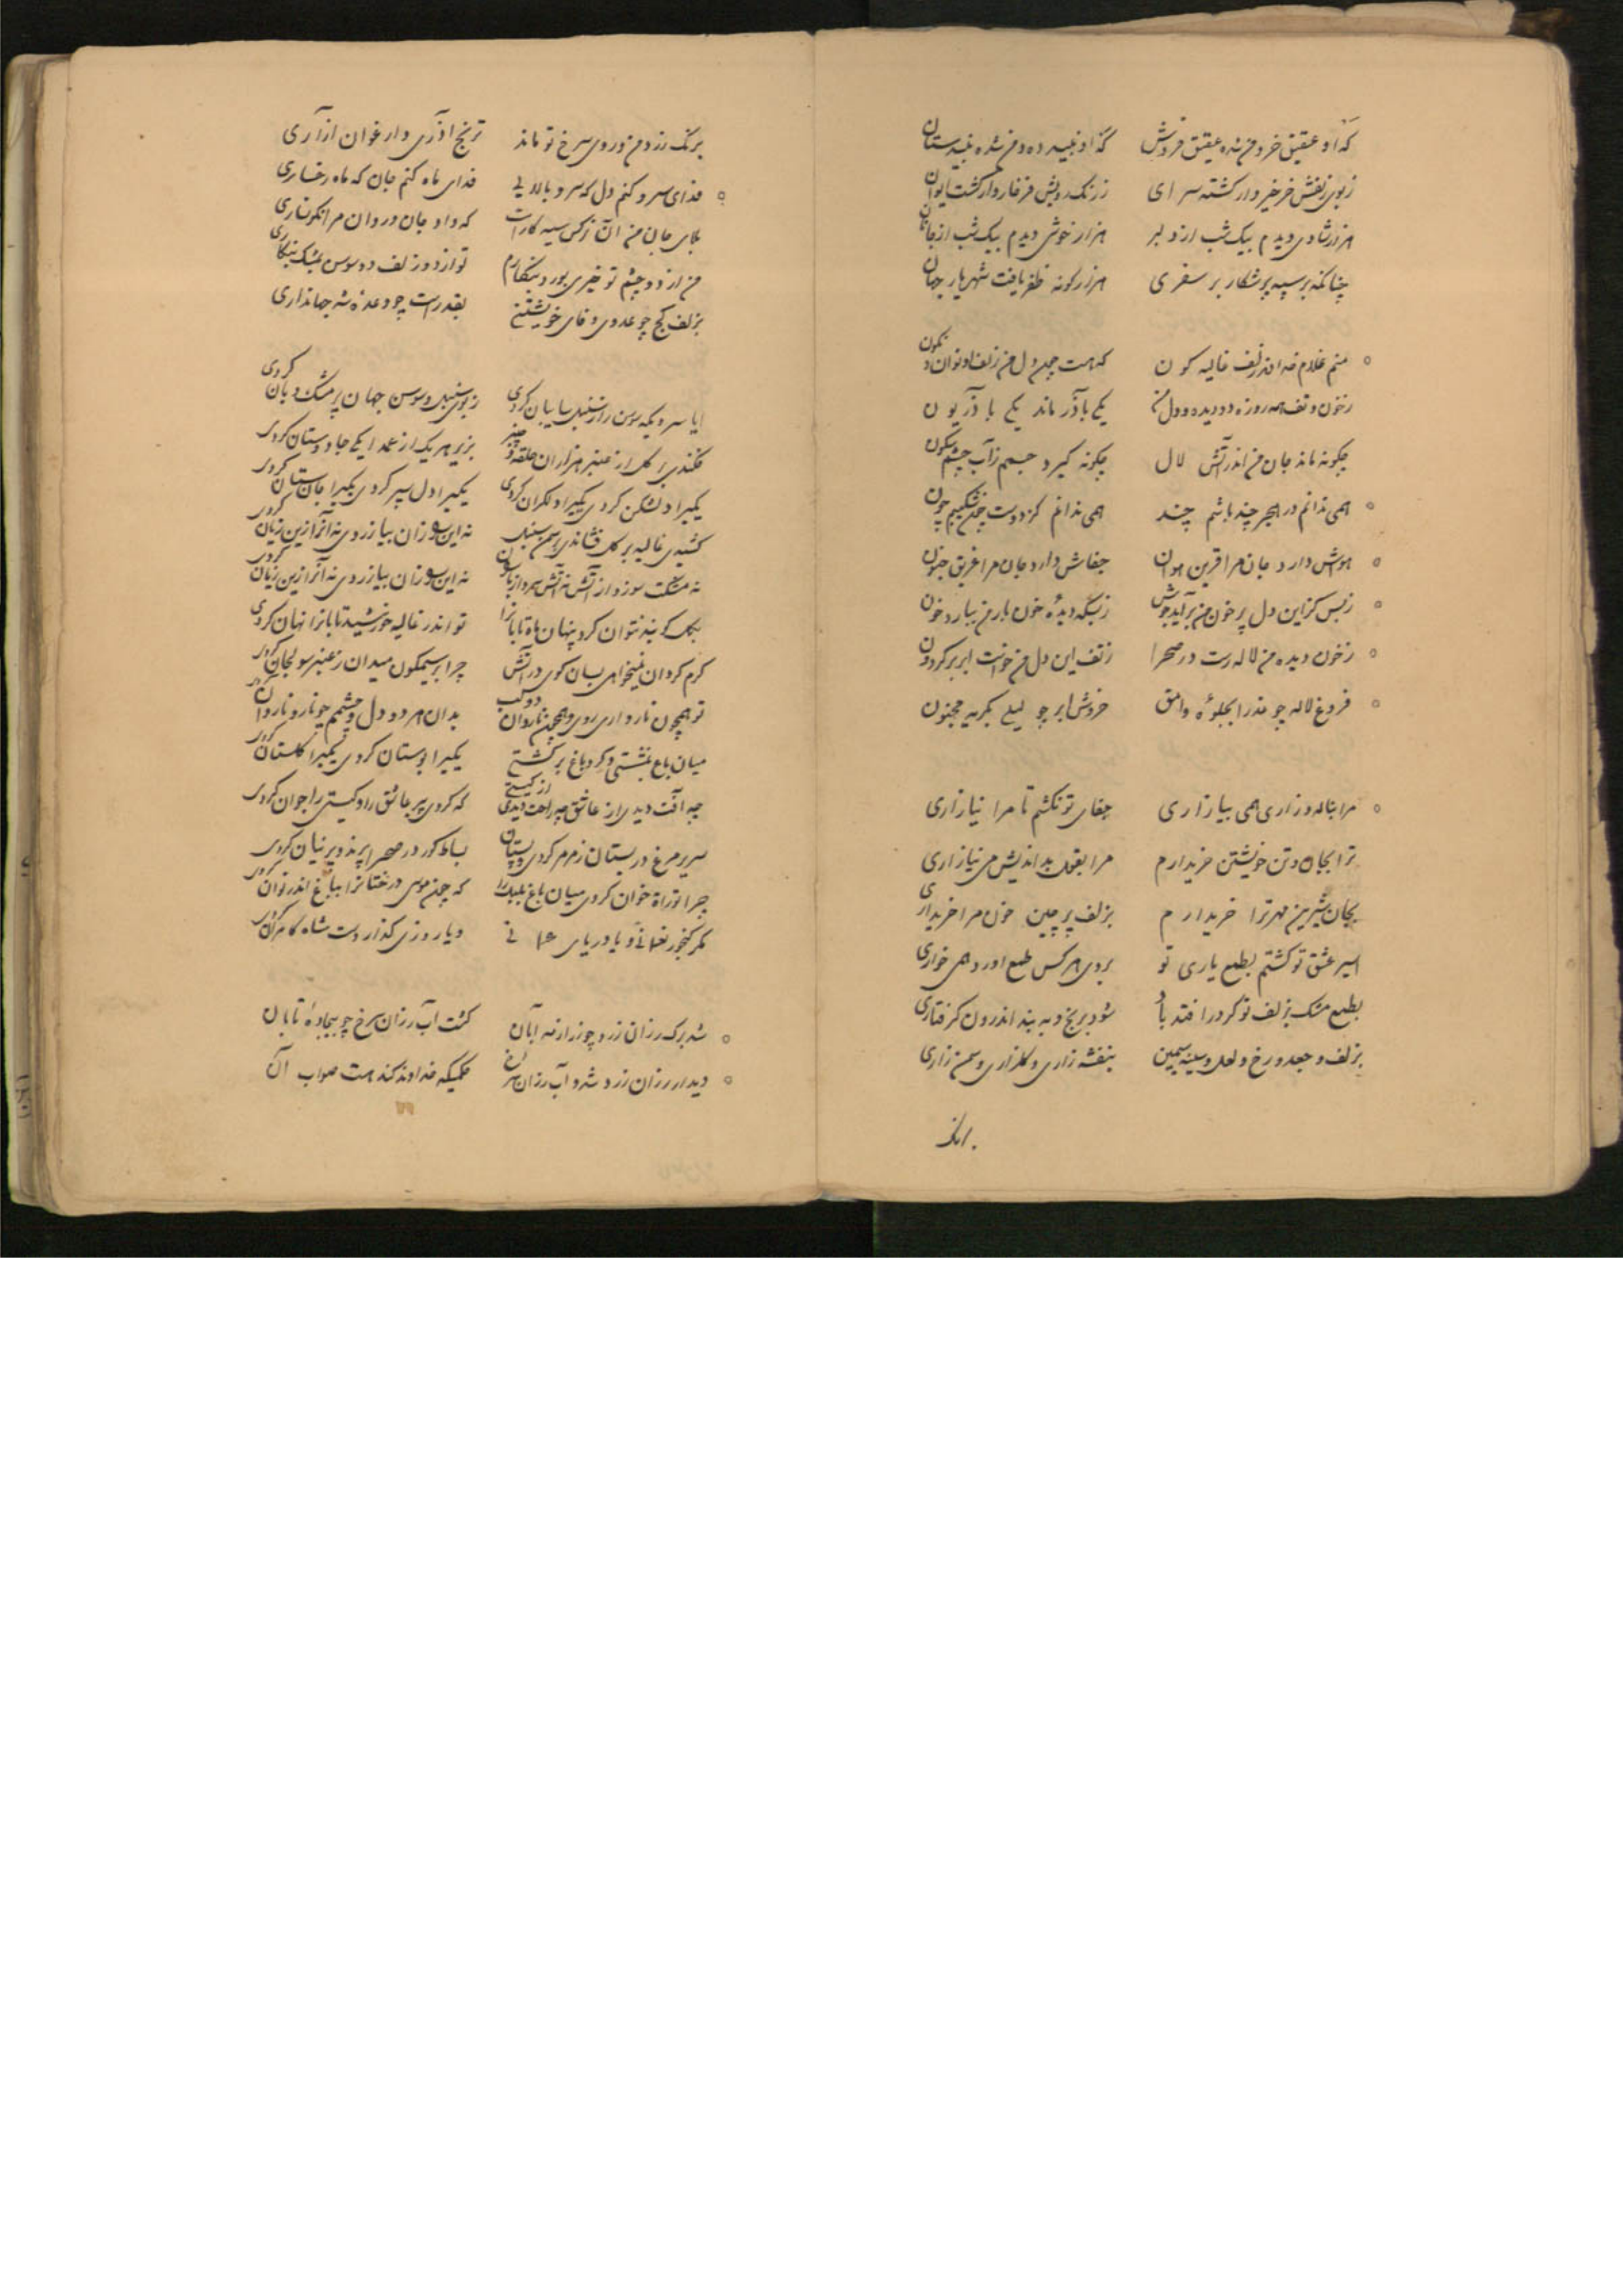 که او عقیق خر و من شده عقیق فروش که او نبید ده و من شده نبیدستان
ز بوی زلفش خرخیز وار گشته سرای ز رنگ رویش فرخار وار گشت ایوان
هزار شادی دیدم بیک شب از دلبر هزار خوشی دیدم بیک شب از جانان
چنانکه بر سپه پرشکار بر سفری هزار گونه ظفر یافت شهریار جهان
منم غلام خداوند زلف غالیه کون که هست چون دل من زلف او نوان و نکون
ز خون و تف همه روزه دو دیده و دل من یکی باذر ماند یکی باذریون
چگونه ماند جان من اندر آتش لال چگونه گیرد جسم ز آب چشم سکون
همی ندانم در هجر چند باشم چند همی ندانم کز دوست چون شکیبم چون
هواش دارد جان مرا قرین هوان جفاش دارد جان مرا غریق جنون
ز بس کز این دل پر خون من برآید جوش ز بسکه دیدۀ خون بار من ببارد خون
ز خون دیده من لاله رست در صحرا ز تف این دل من خواست ابر بر گردون
فروغ لاله چو عذرا بجلوۀ وامق خروش ابر چو لیلی بگریه مجنون
مرا بناله و زاری همی بیازاری جفای تو نکشم تا مرا نیازاری
ترا بجان و تن خویشتن خریدارم مرا بقول بداندیش می نیازاری
بجان شیرین مهر ترا خریدارم بزلف پرچین خون مرا خریداری
اسیر عشق تو گشتم بطمع یاری تو بروی هر کس طمع اورد همی خواری
بطمع مشک بزلف تو گرد را فتد باد شود برنج و به بند اندرون گرفتاری
بزلف و جعد و رخ و لعل و سینه سیمین بنفشه زاری و گلزاری و سمن زاری
برنک
برنک زرد من و روی سرخ تو ماند ترنج اذری و ارغوان ازاری
فدای سرو کنم دل که سرو بالایی فدای ماه کنم جان که ماه رخساری
بلای جان من آن نرکس سیه کار است که داد جان و روان مرا نکونساری
من از دو چشم تو خیری بورد بنگارم تو از دو زلف دو سوسن بمشک بنگاری
بزلف کج چو عدوی وفای خویشتنی بقد راست چو وعده شه جهانداری
ایا سروی که سوسن را ز سنبل سایبان کردی ز بوی سنبل و سوسن جهان پر مشک و بان کردی
فکندی بر کل از عنبر هزاران حلقه و چنبر بزیر هر یک از عمدا یکی جادوستان کردی
یکی را دلشکن کردی یکی را دلگران کردی یکی را دل سپر کردی یکی را جان ستان کردی
کشیدی غالیه بر کل فشاندی بر سمن سنبل نه این را زان بیازردی نه آنرا زین زیان کردی
نه مشکت سوزد از آتش نه آتش میرد از نه این را زان بیازردی نه آنرا زین زیان کردی
بگل گویند نتوان کرد پنهان ماه تابانرا تو اندر غالیه خورشید تابانرا نهان کردی
گرم گردان نمیخواهی بسان گوی در آتش چرا بر سیمگون میدان ز عنبر صولجان کردی
تو همچون نار داری روی و همچون ناردان دو لب بدان هر دو دل و چشمم چو نار و ناردان کردی
میان باغ بنشستی و گرد باغ برگشتی یکی را بوستان کردی یکی را گلستان کردی
چه آفت دیدی از عاشق چه راحت دیدی از گیتی که کردی پیر عاشق را و گیتی را جوان کردی
سریر مرغ در بستان ز مرمر کردی بساط گور در صحرا پرند و پرنیان کردی
چرا توراة خوان کردی میان باغ بلبل را که چون موسی درختانرا بباغ اندر نوان کردی
مگر گنجور نعمانی و یا دریای عمانی و یا روزی گذار دست شاه کامران کردی
شد برک رزان زرد چو زر از مه آبان گشت آب رزان سرخ چو بیجادۀ تابان
دیدار رزان زرد شد و آب رزان سرخ حکمیکه خداوند کند هست صواب آن